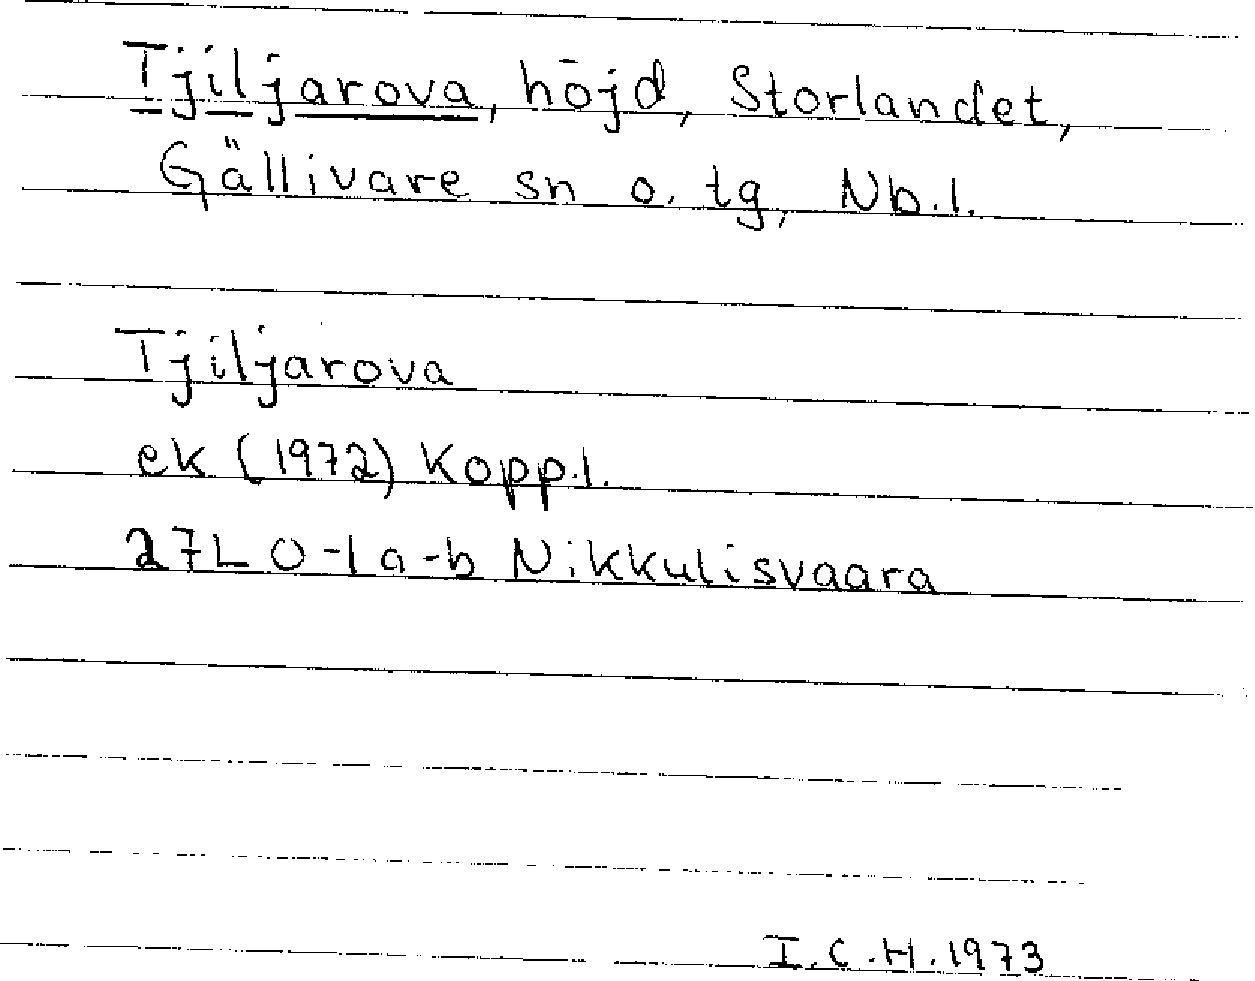 Tjiljarova, höjd, Storlandet,
Gällivare sn o. tg, Nb.l.
Tjiljarova
ek (1972) Koppl.
27L 0-1 a-b Nikkulisvaara
I.C.H. 1973